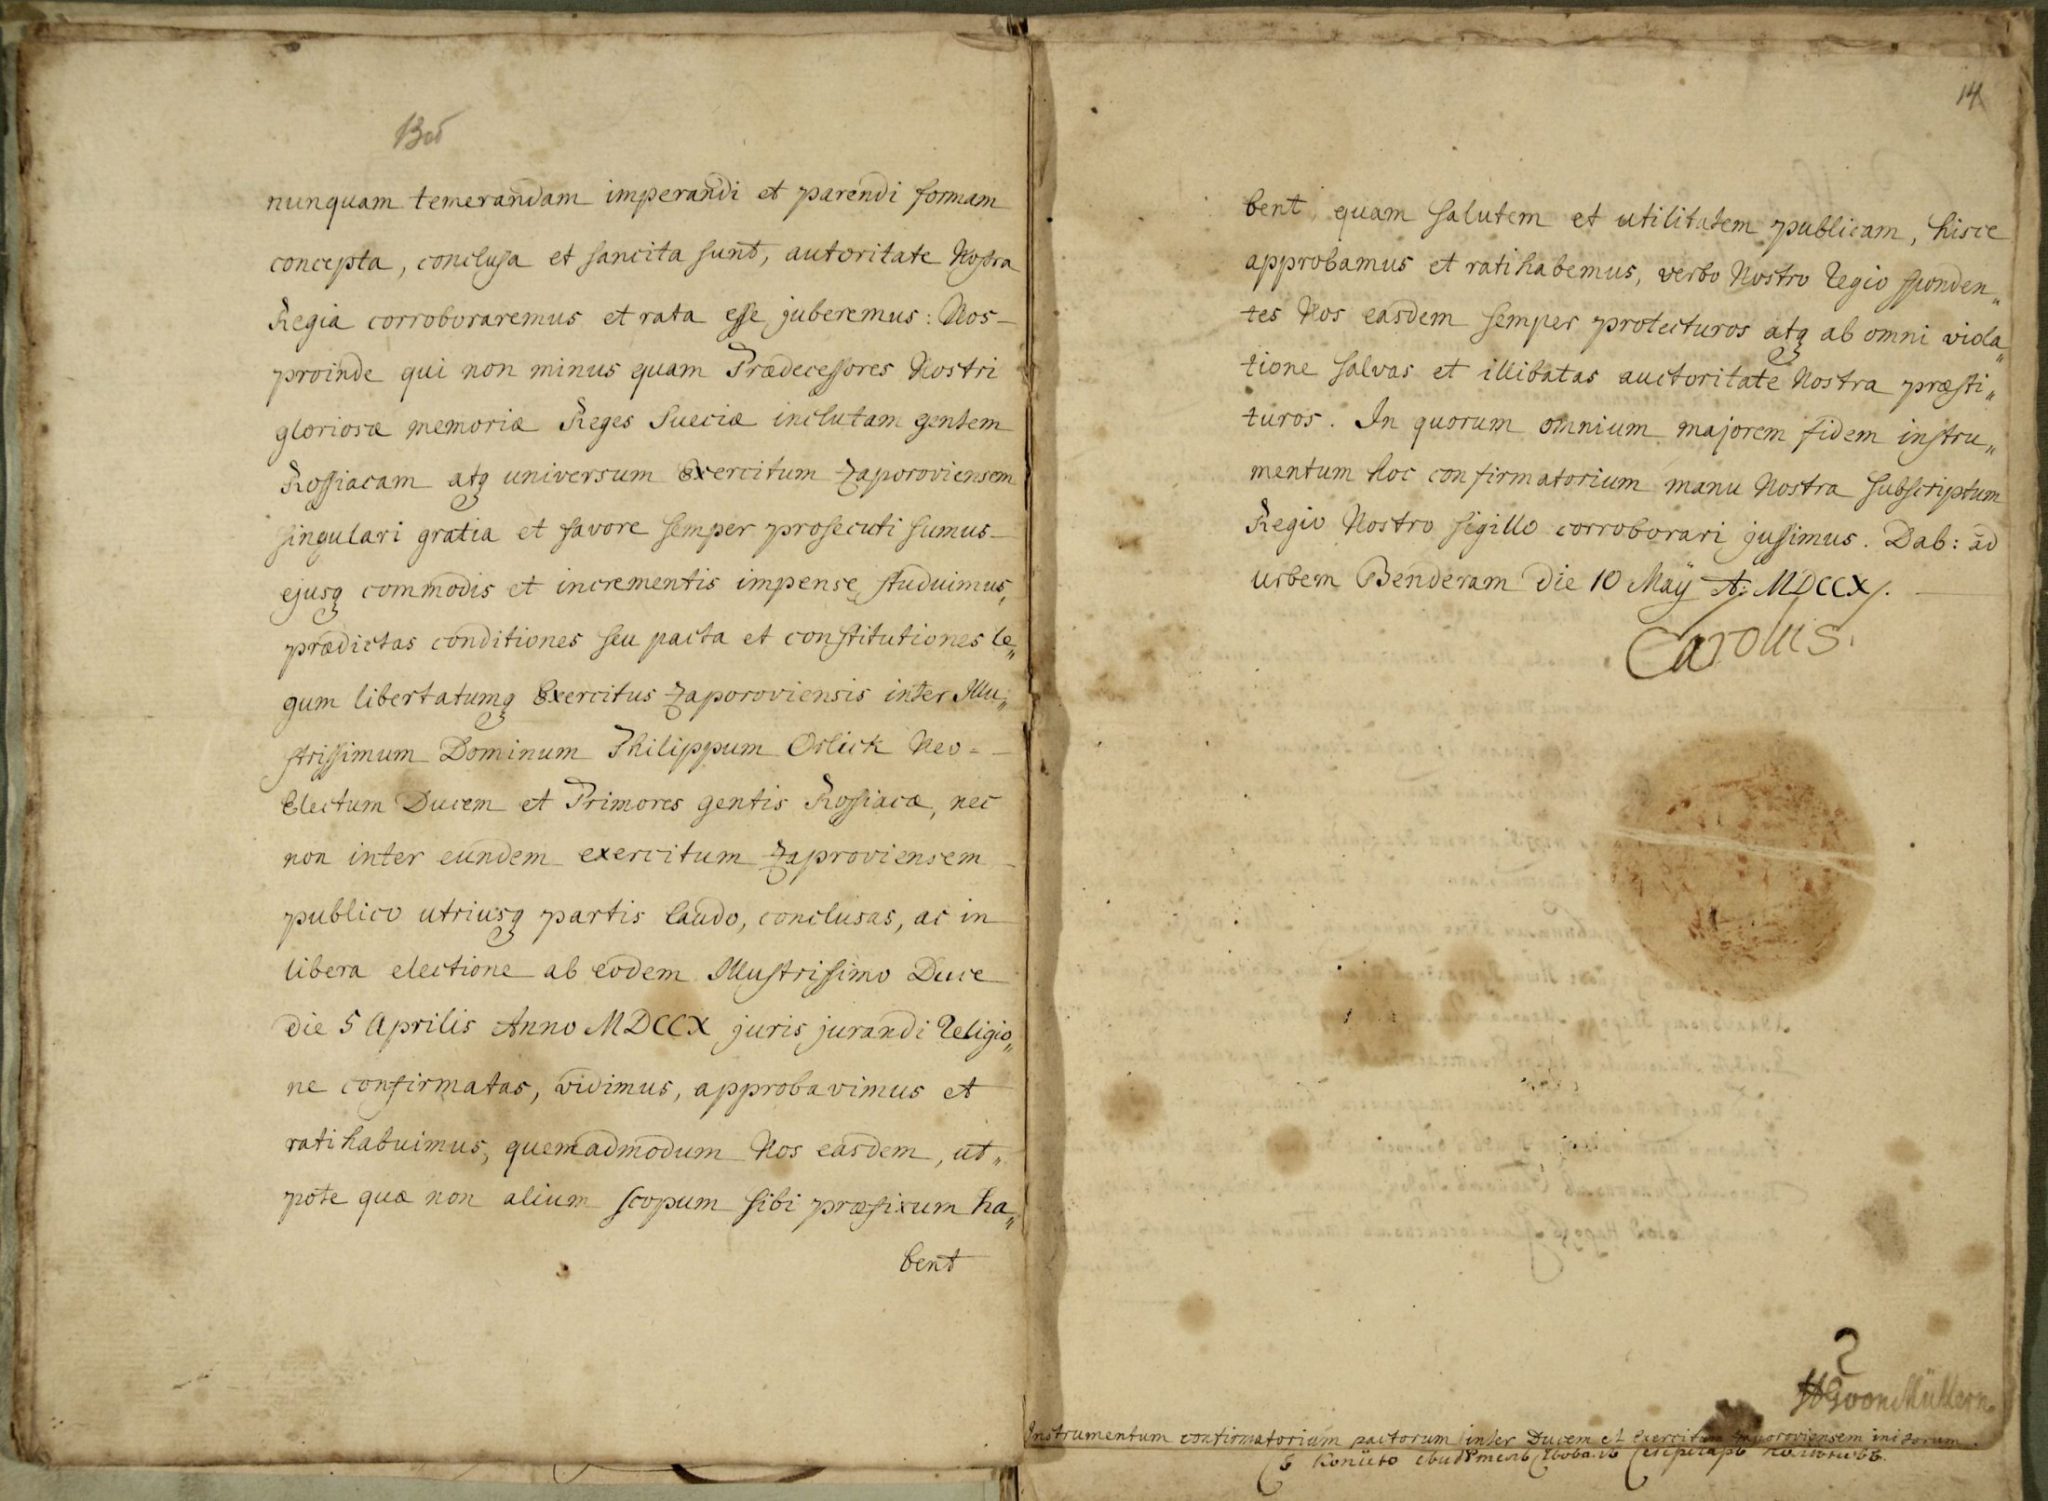 13об
nunquam temerandam imperandi et parendi formam
concepta, conclusa et sancita sunt, autoritate Nostra
Regia corroboraremus et rata esse juberemus: Nos
proinde qui non minus quam Prædecessores Nostri
gloriosæ memoriæ Reges Sueciæ inclutam gentem
Rossiacam atq universum Exercitum Zaporoviensem
singulari gratia et favore semper prosecuti sumus
ejusq commodis et incrementis impense studuimus,
prædictas conditiones seu pacta et constitutiones le„
gum libertatumq Exercitus Zaporoviensis inter Illu„
strissimum Dominum Philippum Orlick Neo-
Electum Ducem et Primores gentis Rossiacæ, nec
non inter eundem exercitum Zaproviensem
publico utriusq partis laudo, conclusas, ac in
libera electione ab eodem Illustrissimo Duce
die 5 Aprilis Anno MDCCX juris jurandi Religio„
ne confirmatas, vidimus, approbavimus et
ratihabuimus, quemadmodum Nos easdem, ut„
pote quæ non alium scopum sibi præfixum ha„
bent
14
bent, quam salutem et utilitatem publicam, hisce
approbamus et ratihabemus, verbo Nostro Regio sponden„
tes Nos easdem semper protecturos atq ab omni viola„
tione salvas et illibatas auctoritate Nostra præsti„
turos. In quorum omnium majorem fidem instru„
mentum hoc confirmatorium manu Nostra subscriptum
Regio Nostro sigillo corroborari jussimus. Dab: ad
urbem Benderam die 10 Maÿ A: MDCCX.
Carolus.
HGvonMüllern
Instrumentum confirmatorium pactorum inter Ducem et Exercitum Zaporoviensem initorum.